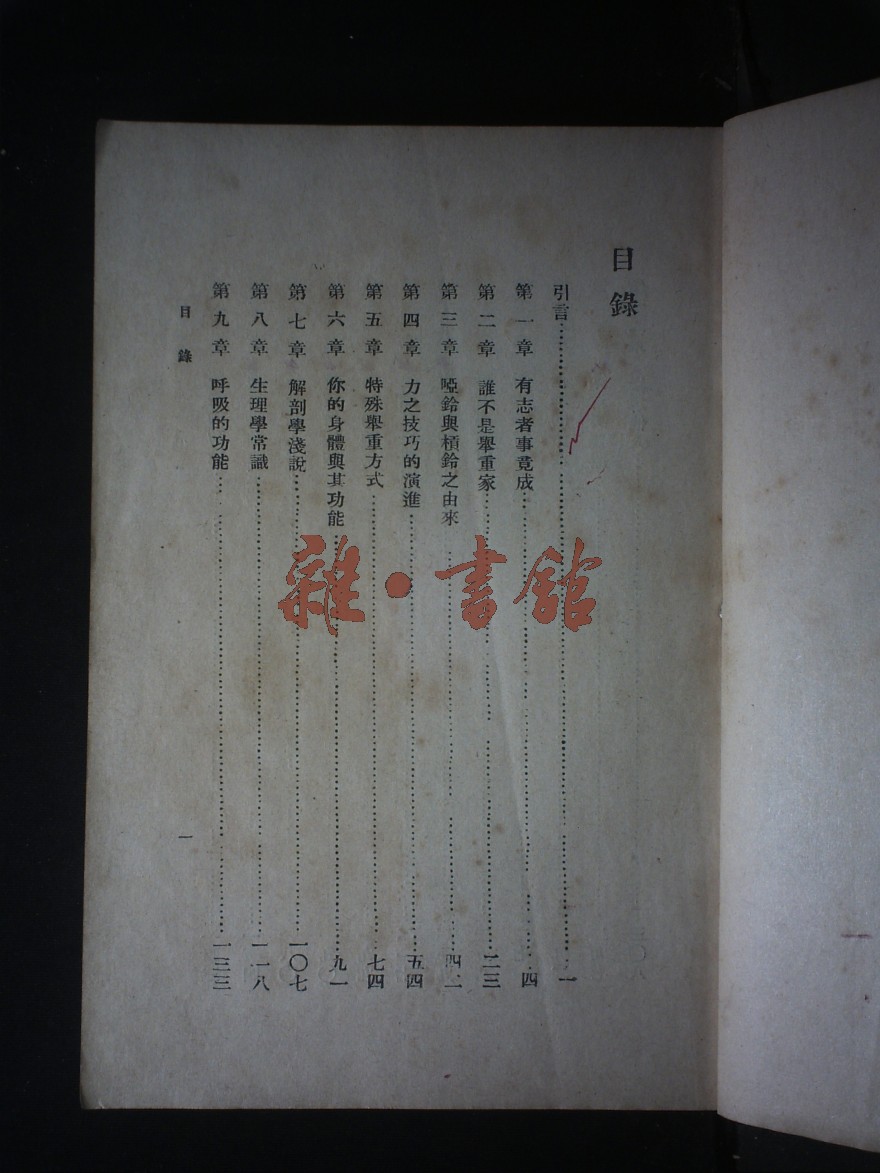 目錄
引言……一
第一章 有志者事竟成……四
第二章 誰不是舉重家……二三
第三章 啞鈴與槓鈴之由來……四二
第四章 力之技巧的演進……五四
第五章 特殊舉重方式……七四
第六章 你的身體與其功能……九一
第七章 解剖學淺說……一〇七
第八章 生理學常識……一一八
第九章 呼吸的功能……一三三
目錄
一
雜·書館